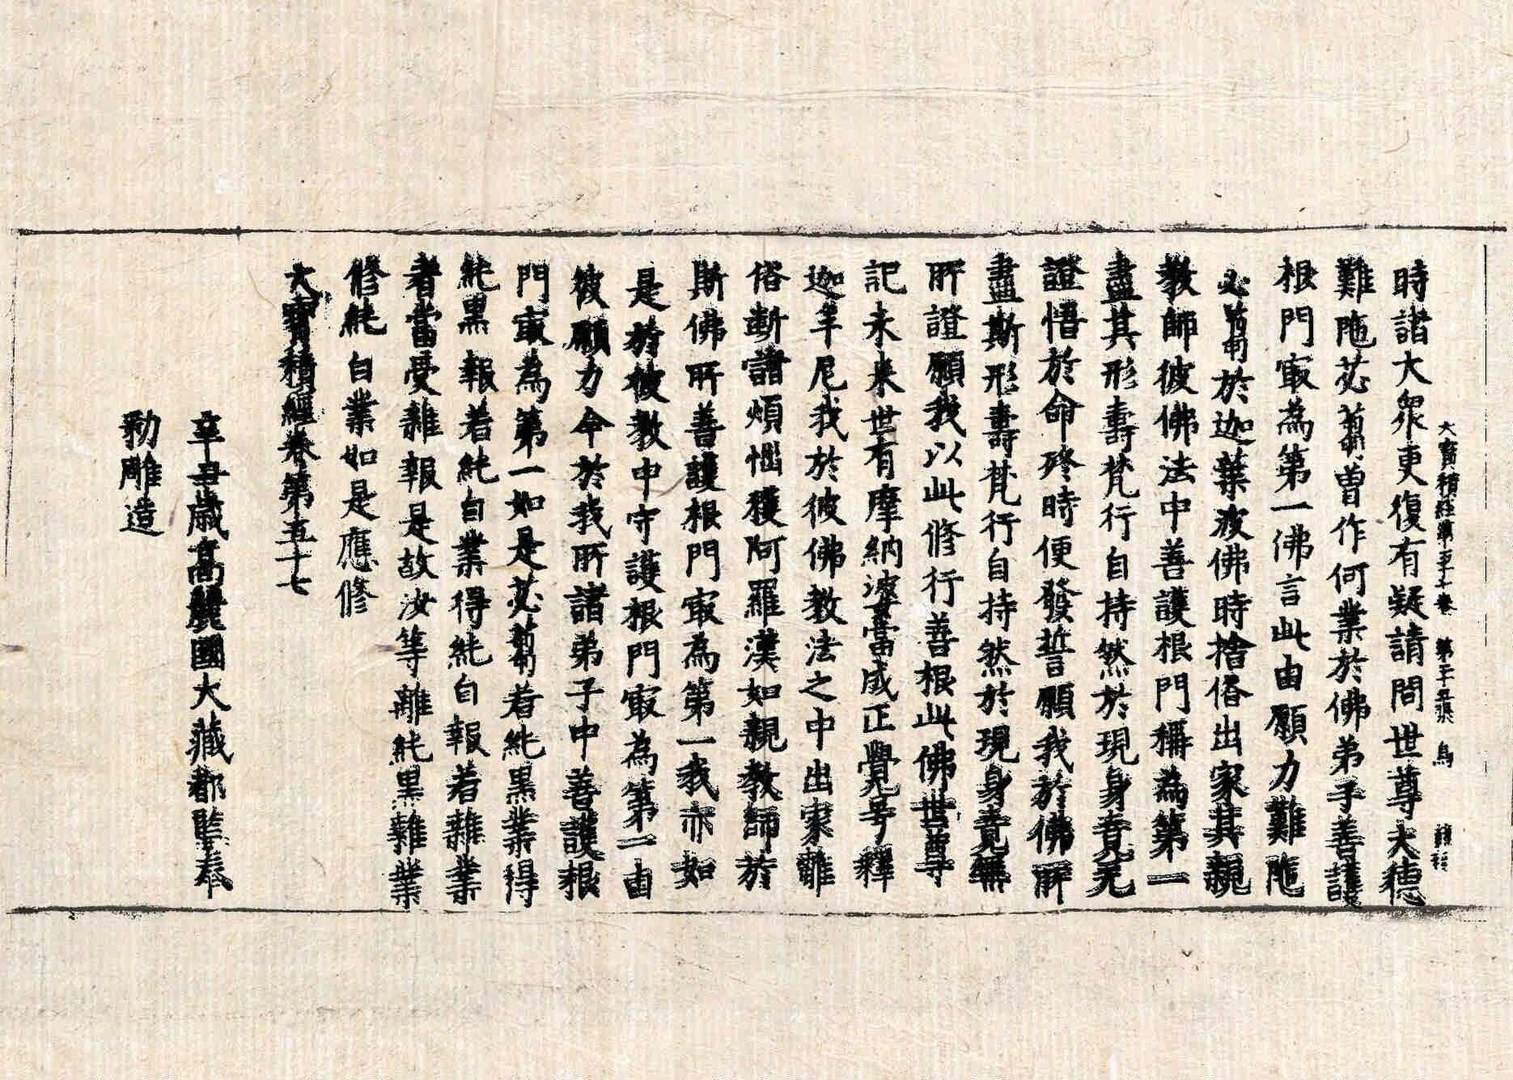 大寶積經第五十七卷 第二十五張 鳥
時諸大衆更復有疑請問世尊大德
難陁苾蒭曾作何業於佛弟子善護
根門㝡爲第一佛言此由願力難陁
苾蒭於迦葉波佛時捨俗出家其親
教師彼佛法中善護根門稱爲第一
盡其形壽梵行自持然於現身竟无
證悟於命終時便發誓願我於佛所
盡斯形壽梵行自持然於現身竟無
所證願我以此修行善根此佛世尊
記未来世有摩納婆當成正覺号釋
迦牟尼我於彼佛教法之中出家離
俗斷諸煩惱獲阿羅漢如親教師於
斯佛所善護根門㝡爲第一我亦如
是於彼教中守護根門㝡爲第一由
彼願力今於我所諸弟子中善護根
門㝡爲第一如是苾蒭若純黒業得
純黒報若純白業得純白報若雜業
者當受雜報是故汝等離純黒雜業
修純白業如是應修
大寶積經卷第五十七
辛丑歲高麗國大藏都監奉
勑雕造